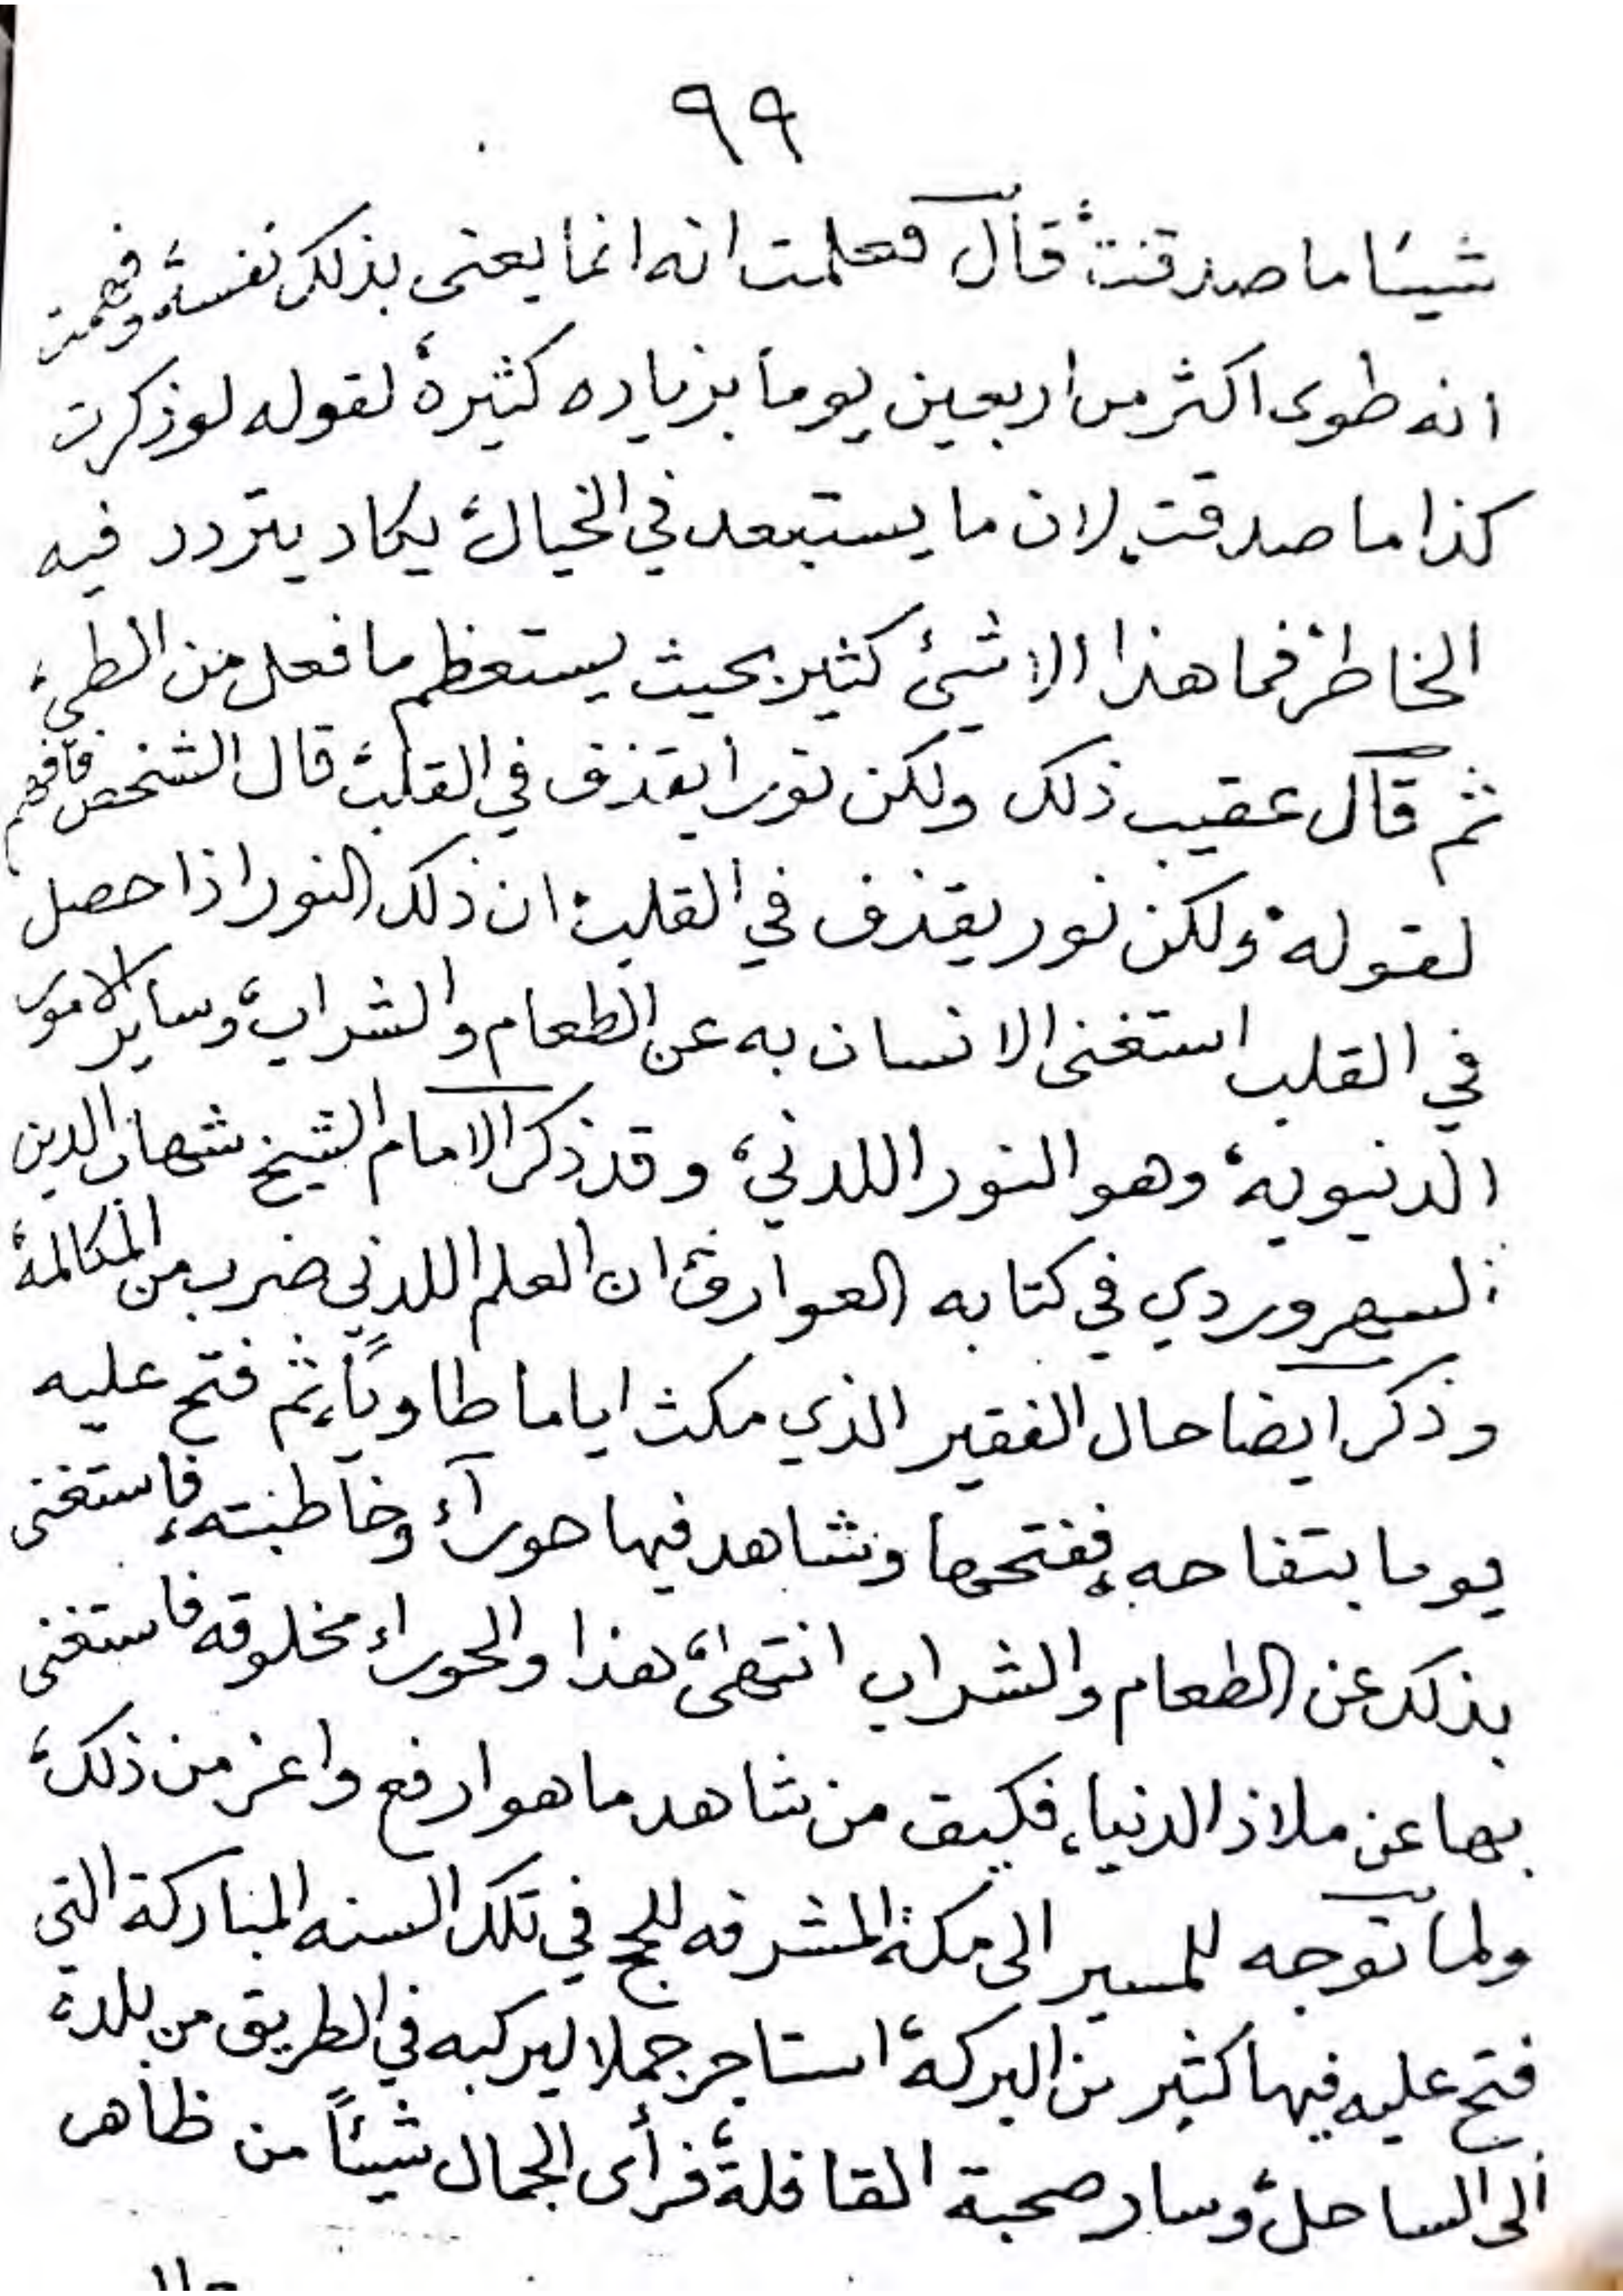 ٩٩
شيئا ما صدقت، قال فعلمت انه انما يعنى بذلك نفسه، وفهمت
انه طوى اكثر من اربعين يوما بزياده كثيرة، لقوله لو ذكرت
كذا ما صدقت، لان ما يستبعد في الخيال، يكاد يتردد فيه
الخاطر، فما هذا الا شيئ كثير بحيث يستعظم ما فعل من الطي،
ثم قال عقيب ذلك ولكن نورا يقذف في القلب، قال الشخص فافهم
لقوله، ولكن نور يقذف في القلب، ان ذلك النور اذا حصل
في القلب استغنى الانسان به عن الطعام والشراب، وساير الامور
الدنيويه، وهو النور اللدني، وقد ذكر الامام الشيخ شهاب الدين
السهروردي في كتابه العوارف، ان العلم اللدني ضرب من المكالمة،
وذكر ايضا حال الفقير الذي مكث اياما طاويًا، ثم فتح عليه
يوما بتفاحه، ففتحها وشاهد فيها حورآء وخاطبته، فاستغنى
بذلك عن الطعام والشراب انتهى، هذا والحوراء مخلوقه فاستغنى
بها عن ملاذ الدنيا، فكيف من شاهد ما هو ارفع واعز من ذلك،
ولما توجه للمسير الى مكة المشرفه للحج في تلك السنه المباركة التي
فتح عليه فيها كثير من البركة، استاجر جملا ليركبه في الطريق من بلده
الى الساحل، وسار صحبة القافلة، فرأى الجمال شيئاً من ظاهر